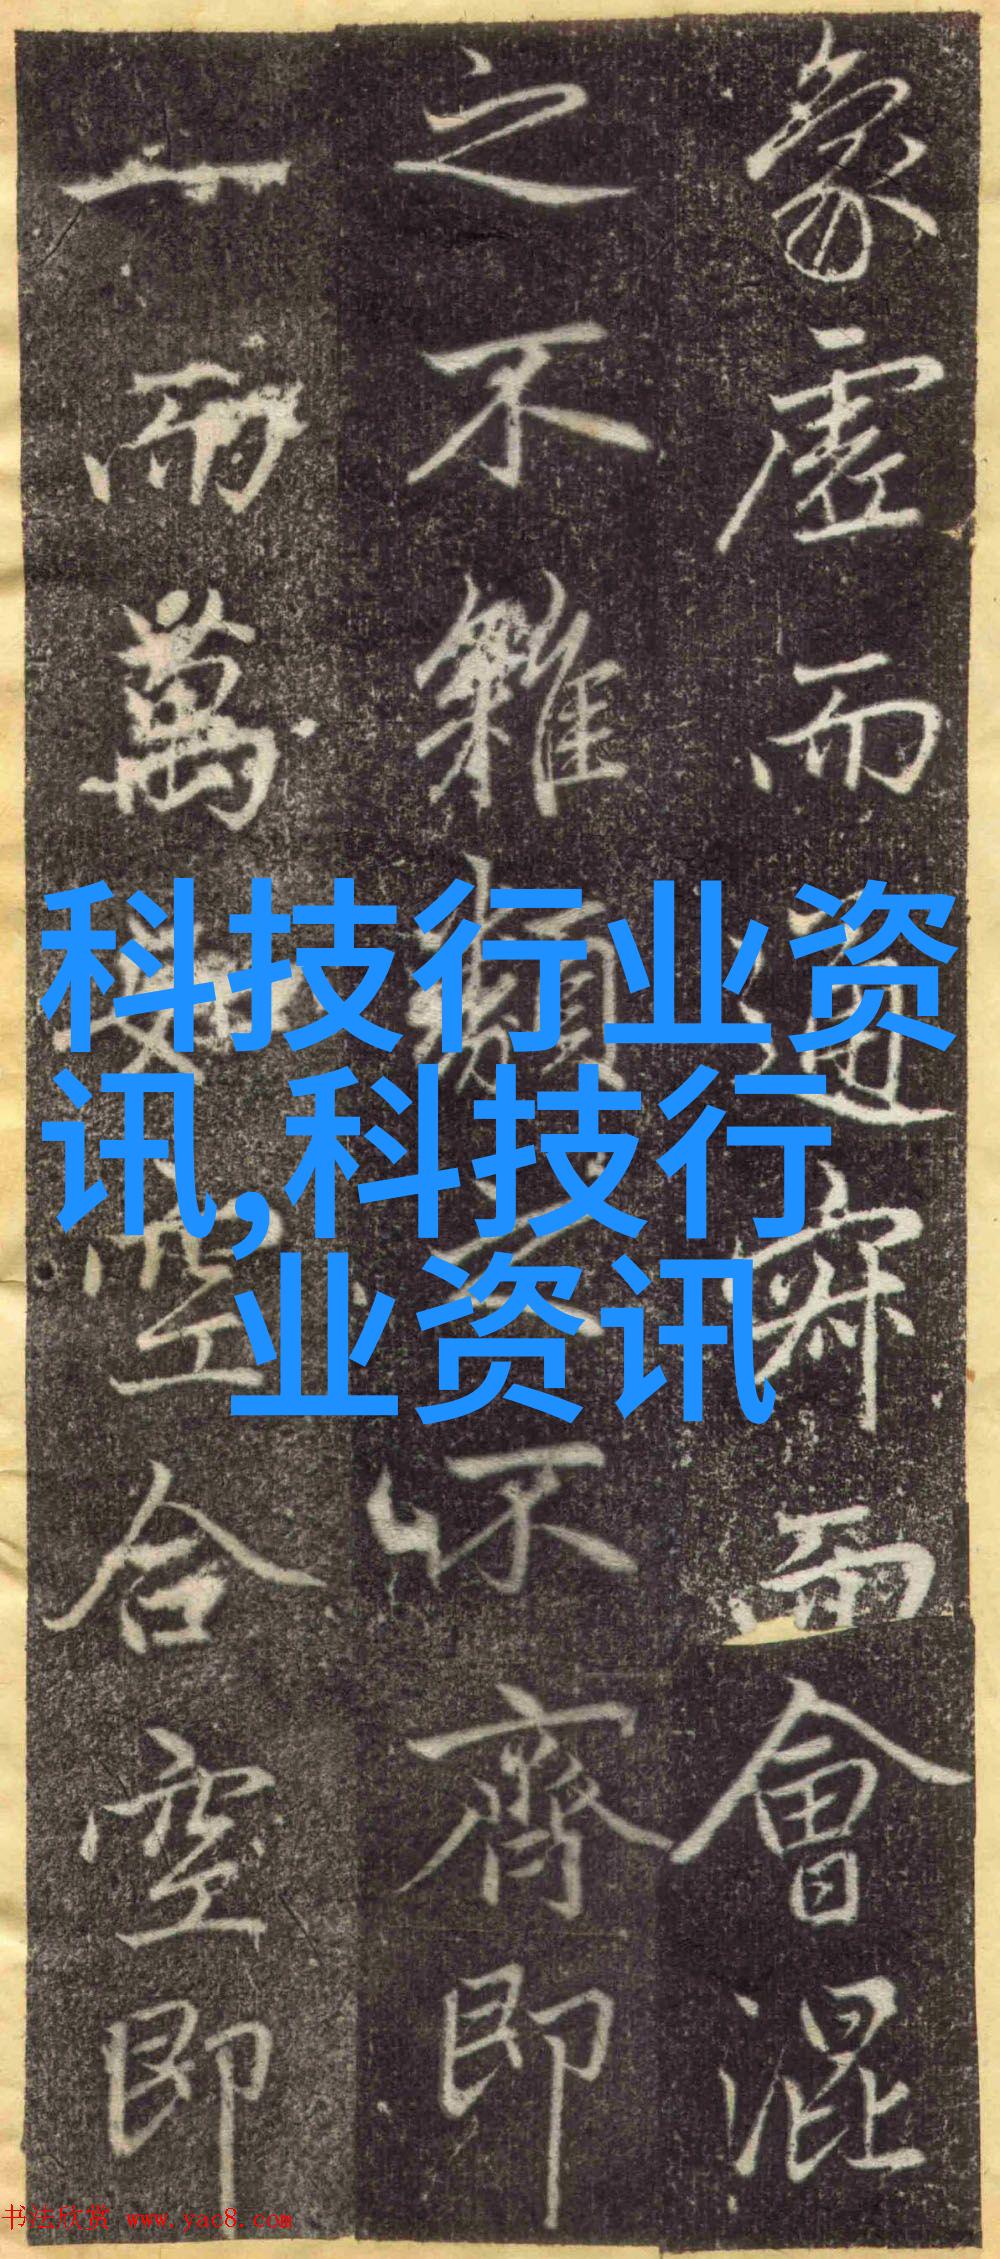 象虛而通寂而會混
之不雜類之不齊即
一而萬空合空即
科技行业资
讯,科技行
业资讯
书法欣赏 www.yac8.com